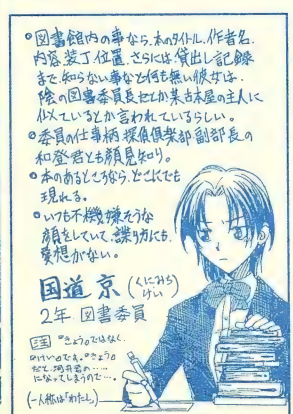 ◦図書館内の事なら、本のタイトル、作者名、
内容、装丁、位置、さらには、貸出し記録
まで、知らない事など何も無い彼女は、
陰の図書委員長だとか某古本屋の主人に
似ているとか言われているらしい。
◦委員の仕事柄、探偵倶楽部副部長の
和登君とも顔見知り。
◦本のあるところなら、どこにでも
現れる。
◦いつも不機嫌そうな
顔をしていて、喋り方にも、
愛想がない。
国道 京 (くにみち けい)
2年。図書委員
注 『きょう』ではなく、
『けい』です。『きょう』
だと、河井君の…
になってしまうので…。
(一人称は「わたし」)